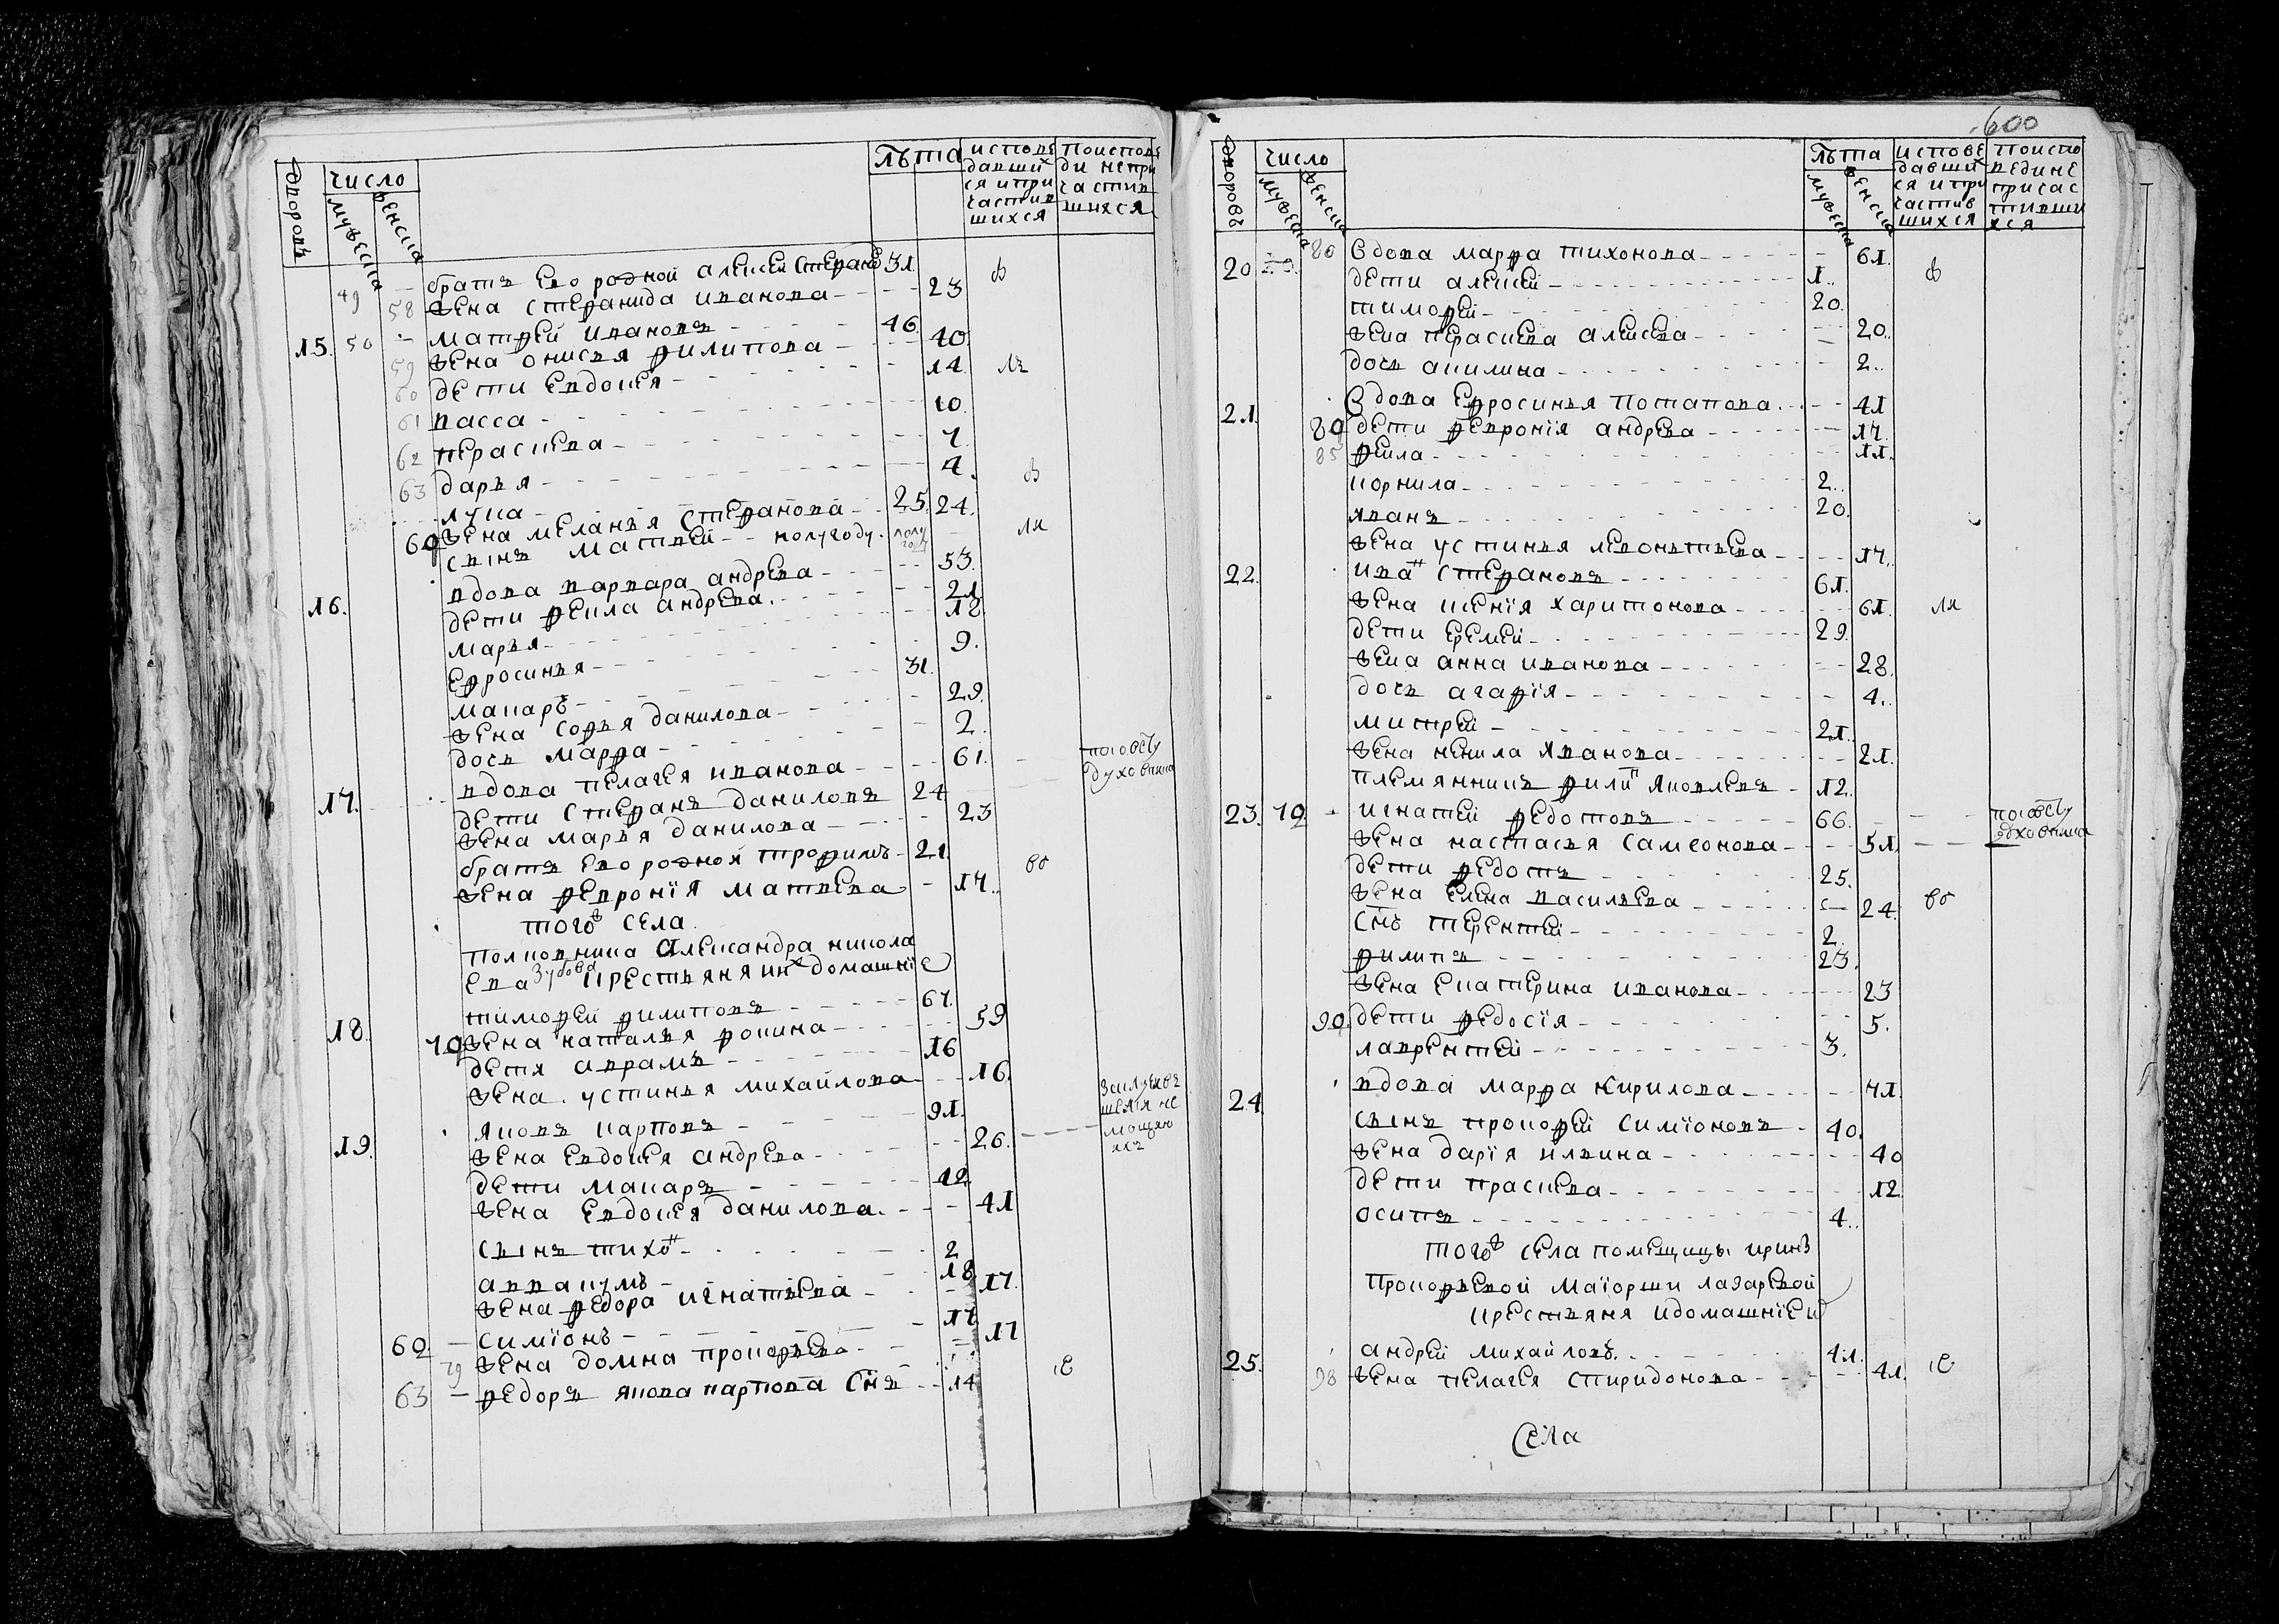 дворовъ
число
мужеска
женска
лѣта
исповѣ
давши
ся и при
частив
шихся
по испове
ди не при
частив
шихся
49 — братъ ево родной алексей стефано 31
58 жена стефанида иванова — 23
15. 50 — матфей ивановъ — 46.
59 жена онисья филипова — 40
60 дети евдокея — 14.
61 васса — 10.
62 праскева — 7.
63 дарья — 4.
лука — 25.
жена меланья стефанова — 24.
сынъ матвей — полугоду. полу году
16. вдова варвара андрева — 53.
дети фекла андрева. — 21
марья — 18
ефросинья — 9.
макаръ — 31.
жена софья данилова — 29.
дочь марфа — 2.
17. вдова пелагея иванова — 61.
дети стефанъ даниловъ 24
жена марья данилова — 23
братъ ево родной трофимъ — 21.
жена феврониѧ матвева — 17.
того ж села
полковника александра никола
ева зубова крестьяня и домашнїе
18. тимофей филиповъ — 67.
70 жена наталья фокина — 59
детя аврамъ — 16
жена. устинья михайлова — 16.
19. яковъ карповъ — 91.
жена евдокея андрева — 26.
дети макаръ — 42.
жена евдокея данилова. — 41
сынъ тихон — 2
аввакумъ — 18
жена федора игнатьева — 17.
60 — симїонъ — 17
79 жена домна прокофьева — 17
63 — федоръ якова карпова снъ — 14
600
дворовъ
число
мужеска
женска
лѣта
мужеска
женска
исповѣ
давши
ся и при
частив
шихся
по испо
ведине
причас
тивши
хся
20 80 вдова марфа тихонова — 61.
дети алексей — 1..
тимофей — 20.
жена праскева алексева — 20.
дочь акилина — 2..
21. вдова ефросинья потапова. — 41
89 дети феврония андрева — 17.
85 фекла — 11.
корнила — 2..
яванъ — 20.
жена устинья левоньтьева — 17.
22. иван стефановъ — 61.
жена ксения харитонова — 61.
дети еремей — 29.
жена анна иванова — 28.
дочь агафїя — 4.
митрей — 21.
жена ненила яванова — 21.
племянникъ филип яковлевъ — 12.
23. 72 — игнатей федотовъ — 66.
жена настасья самсонова — 51.
дети федотъ — 25.
жена елена васильева — 24.
снъ терентей — 2.
филипъ — 23.
жена екатерина иванова — 23
90 дети федосїя — 5.
лаврентей — 3.
24. вдова марфа кирилова — 71.
сынъ прокофей симїоновъ — 40.
жена дарїя ильина — 40
дети праскева — 12.
осипъ — 4..
того ж села помещицы ирины
прокофьевой маїорши лазаревой
крестьяня и домашнїеи
25. андрей михайловъ. — 41.
98 жена пелагея спиридонова — 41.
села